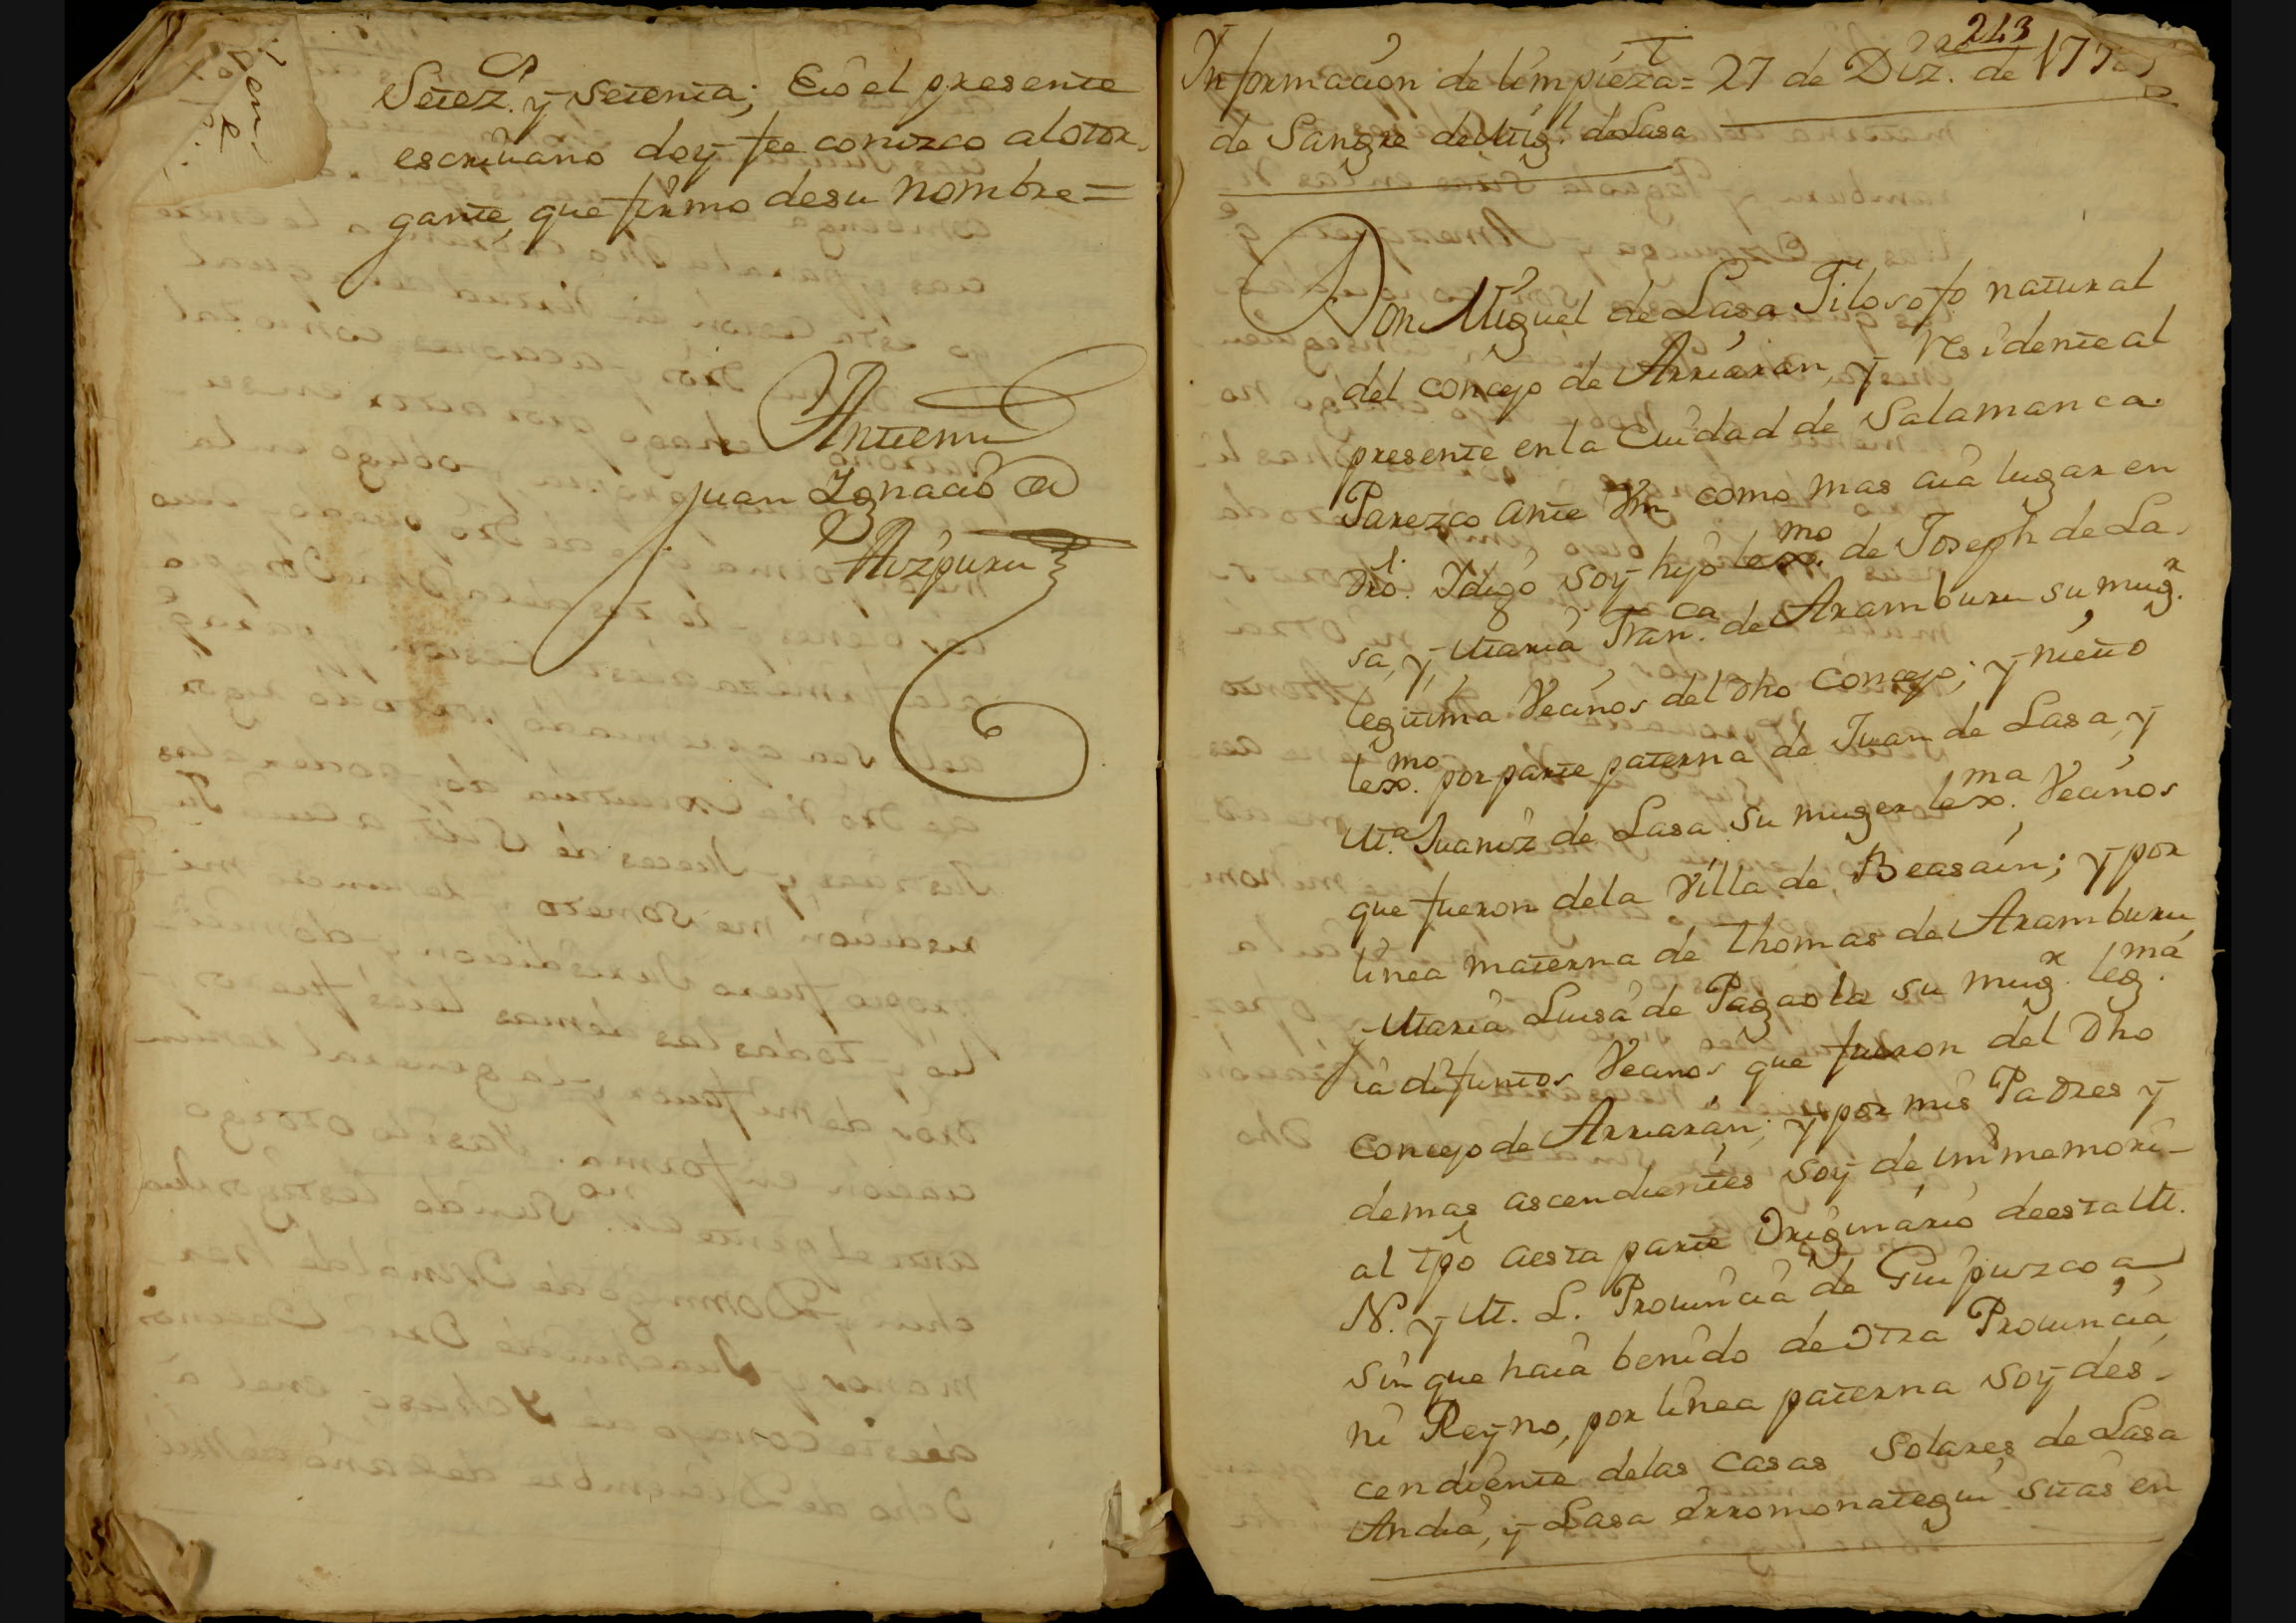 Setez.s y setenta; Eio el presente
escriuano doy fee conozco alotor-
gante, que firmo desu nombre=
Antemi
Juan Ignacio de
Aizpuru
213
Informacion de limpieza= 27 de Diz.e de
de Sangre de Mig.l de Lasa
Don Miguel de Lasa Filosofo natural
del concejo de Arriaran, y residente al
presente en la Ciudad de Salamanca.
Parezco ante Vm como mas aia lugar en
Dro. Idigo soy hijo lexmo. de Joseph de La-
sa, y Maria Fran.ca de Aramburu su mug.r
legitima Vecinos del dho Concejo; y nieto
lexmo. por parte paterna de Juan de Lasa, y
M.a Juaniz de Lasa su muger lexma. Vecinos
que fueron dela Villa de Beasain; y por
linea materna de Thomas de Aramburu,
y Maria Luisa de Pagaola su mug.r leg.ma
ia difuntos Vecinos que fueron del Dho
Concejo de Arriaran; y por mis Padres y
demas ascendientes soy de immemori-
al tpo aesta parte Originario deesta M.
N. y M. L. Prouincia de Guipuzcoa
sin que haia benido de otra Prouincia
ni Reyno, por linea paterna soy des-
cendiente delas Casas Solares de Lasa
Andia, y Lasa erromonategui sitas en